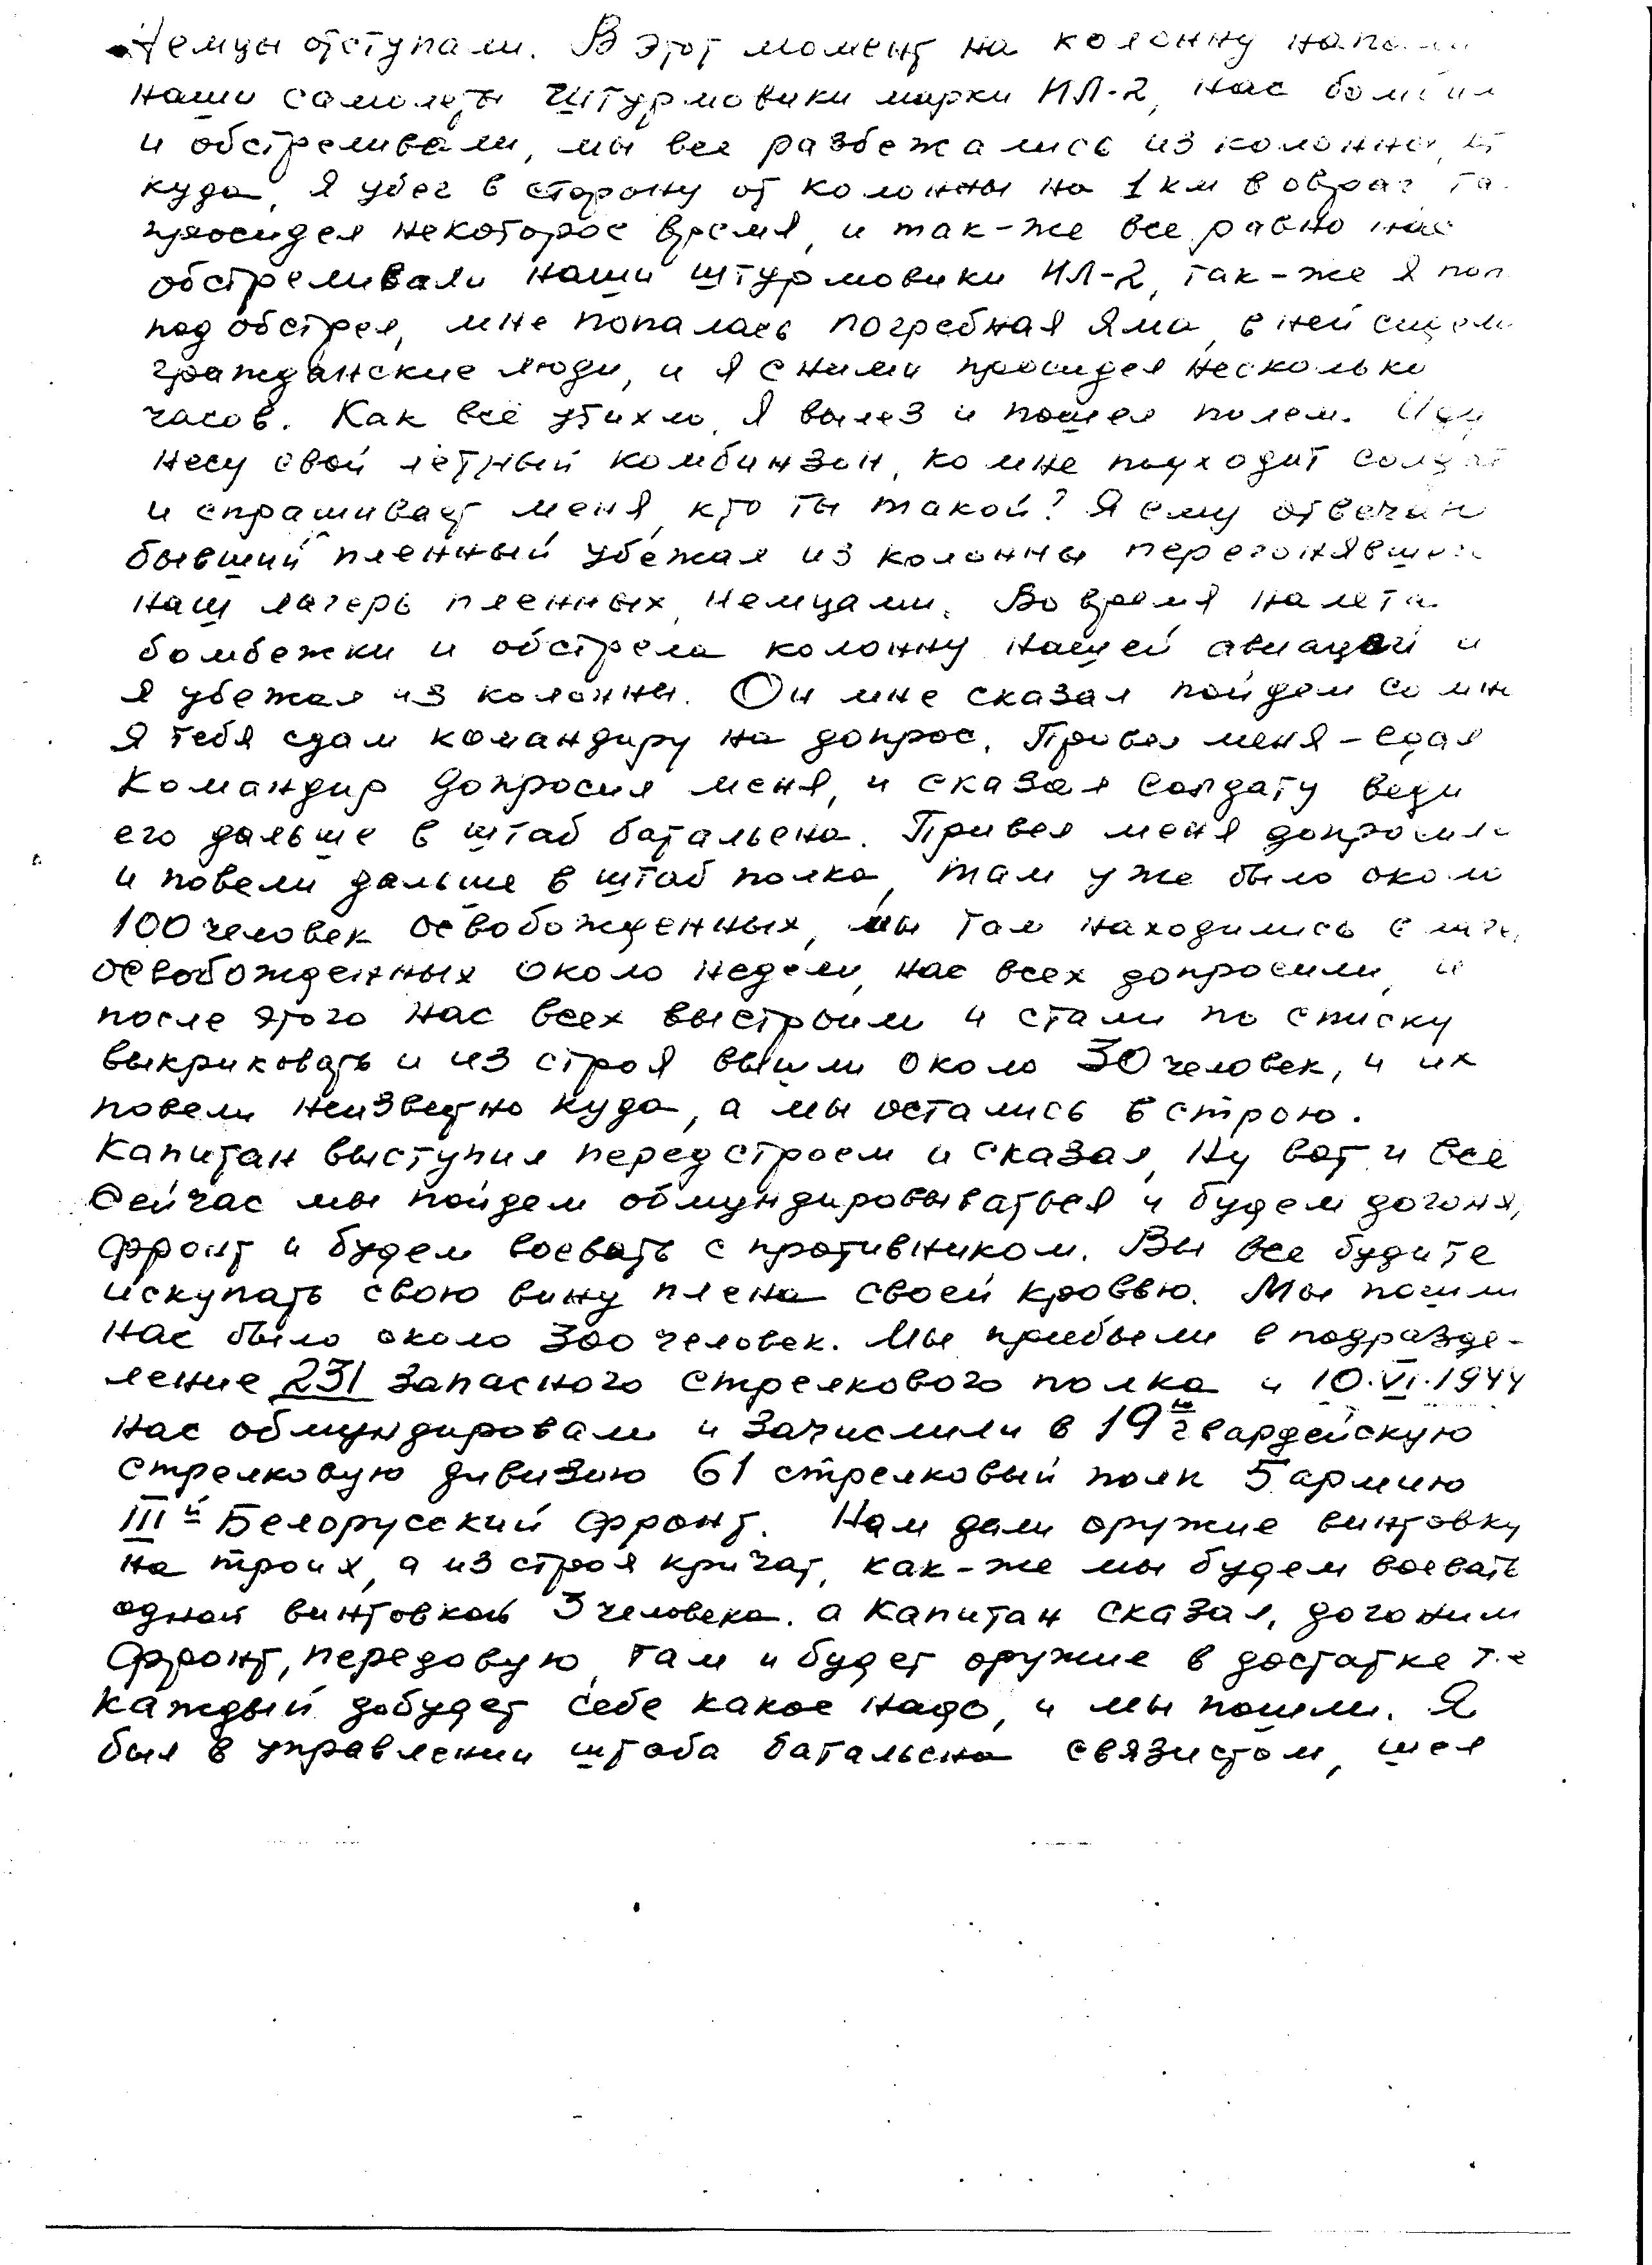 Немцы отступали. В этот момент на колонну напали
наши самолеты штурмовики марки ИЛ-2, нас бомбили
и обстреливали, мы все разбежались из колонны,
куда, я убег в сторону от колонны на 1 км в овраг
просидел некоторое время, и так-же все равно нас
обстреливали наши штурмовики ИЛ-2, так-же я поп
под обстрел, мне попалась погребная яма, в ней сидели
гражданские люди, и я с ними просидел несколько
часов. Как всё утихло, я вылез и пошел полем. Иду
несу свой лётный комбинзон, ко мне подходит солдат
и спрашивает меня, кто ты такой? Я ему отвечаю
бывший пленный убежал из колонны перегонявшей
наш лагерь пленных, немцами. Во время налета
бомбежки и обстрела колонну нашей авиацей и
я убежал из колонны. Он мне сказал пойдем со мн
я тебя сдам командиру на допрос. Привел меня - сдал
Командир допросил меня, и сказал солдату веди
его дальше в штаб батальена. Привел меня допросили
и повели дальше в штаб полка, там уже было около
100 человек освобожденных, мы там находились в лаге
освобожденных около недели, нас всех допросили, и
после этого нас всех выстроили и стали по списку
выкриковать и из строя вышли около 30 человек, и их
повели неизвестно куда, а мы остались в строю.
Капитан выступил перед строем и сказал, Ну вот и всё
сейчас мы пойдем обмундировываться и будем догоня,
фронт и будем воевать с противником. Вы все будите
искупать свою вину плена своей кровью. Мы пошли
нас было около 300 человек. Мы прибыли в подразде-
ление 231 запасного стрелкового полка и 10.VI.1944
нас обмундировали и зачислили в 19ю гвардейскую
стрелковую дивизию 61 стрелковый полк 5 армию
IIIй Белорусский фронт. Нам дали оружие винтовку
на троих, а из строя кричат, как-же мы будем воевать
одной винтовкой 3 человека. а Капитан сказал, догоним
Фронт, передовую, там и будет оружие в достатке т.е
каждый добудет себе какое надо, и мы пошли. Я
был в управлении штаба батальена связистом, шел